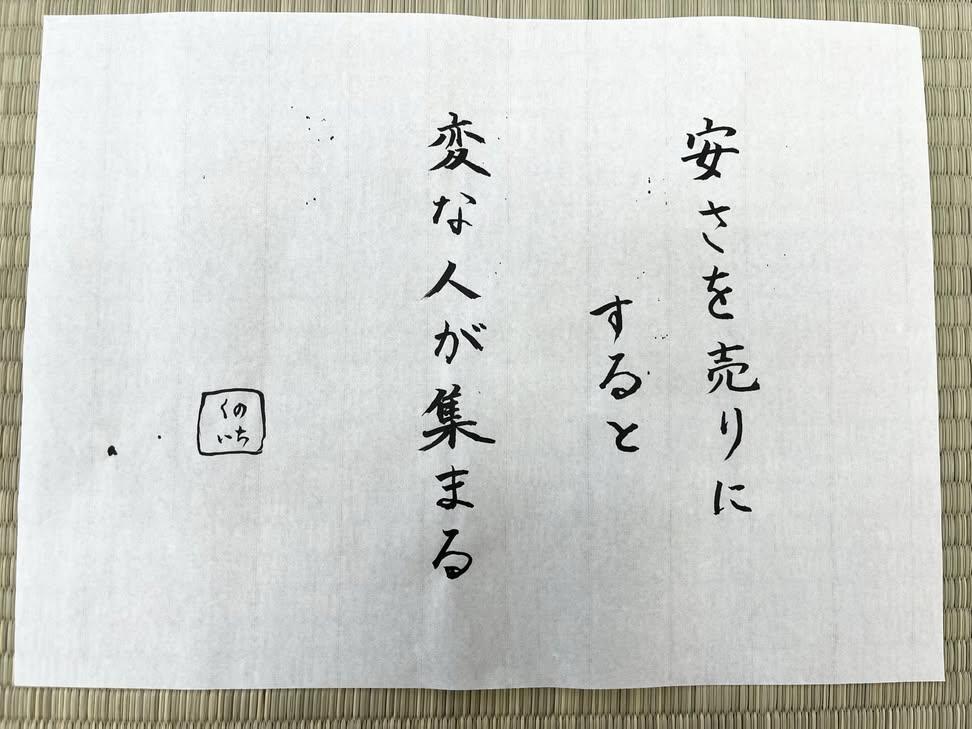 安さを売りに
すると
変な人が集まる
のち
くいち